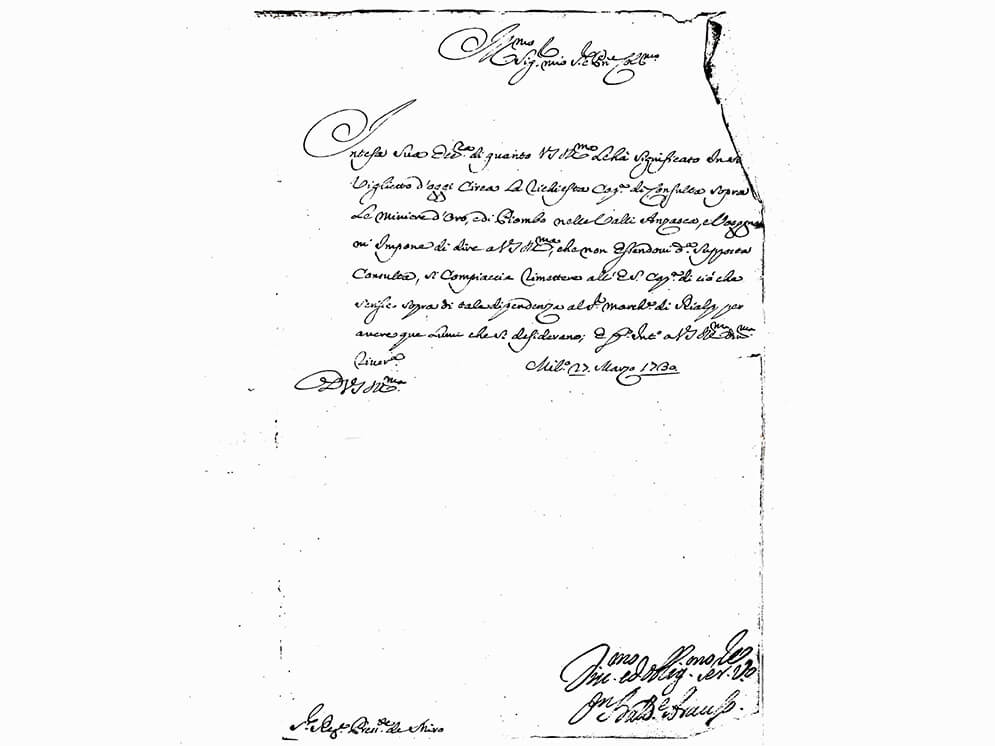 Ill.mo
Sig. mio Sig.re P.ne Col.mo
Intesa Sua Ecc.za di quanto V.S. Ill.ma Le hà significato in
Viglietto d'oggi Circa La richiesta Cop.a di Consulta sopra
Le Miniere d'Oro, e di Piombo nelle Valli Anzasca, e
mi Impone di dire a V.S. Ill.ma, che non essendovi d.a supposta
Consulta, si Compiaccia rimettere all' E.S. Cop.a di ciò che
scrisse sopra di tale dipendenza al S.r March.e di Rialp, per
avere que Lumi che si desiderano; E a V.S. Ill.ma
river.a
Mil.o 17. Marzo 1730.
D V.S. Ill.ma
ed oblig.mo ser.
S.r Reg.e Presid.te de